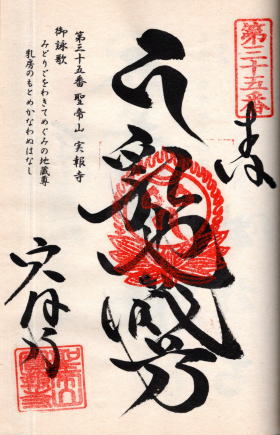 第三十五番
奉
乳地蔵尊
実報寺
第三十五番 聖帝山 実報寺
御詠歌
みどりごをわきてめぐみの地蔵尊
乳房のもとめかなわぬはなし